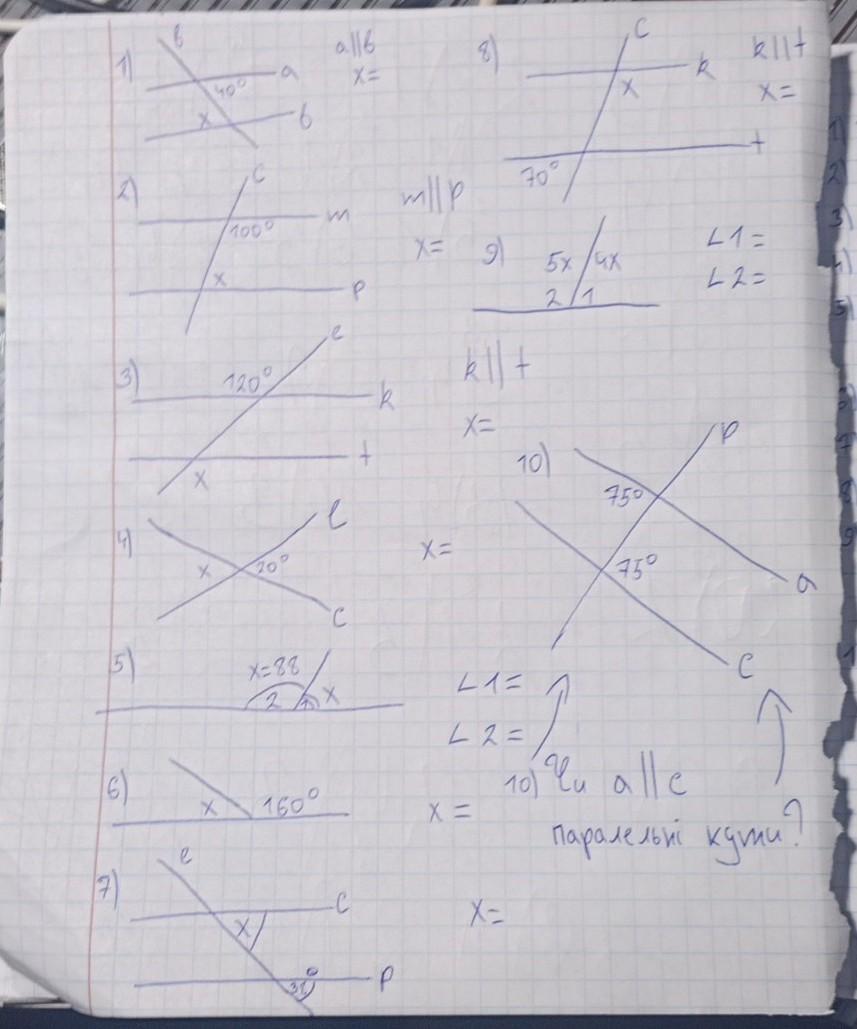 1) в a||в
40° a x=
x в
2) c m||p
100° m x=
x p
3) e k||t
120° k x=
x t
4) x 20° l x=
c
5) x=88 ∠1=
2 1 x ∠2=
6) x 160° x=
7) e
c x=
x
p
8) c k||t
k x=
x
70° t
9) 5x 4x ∠1=
2 1 ∠2=
10) p
75°
75°
a
c
10) Чи a||c
паралельні кути?